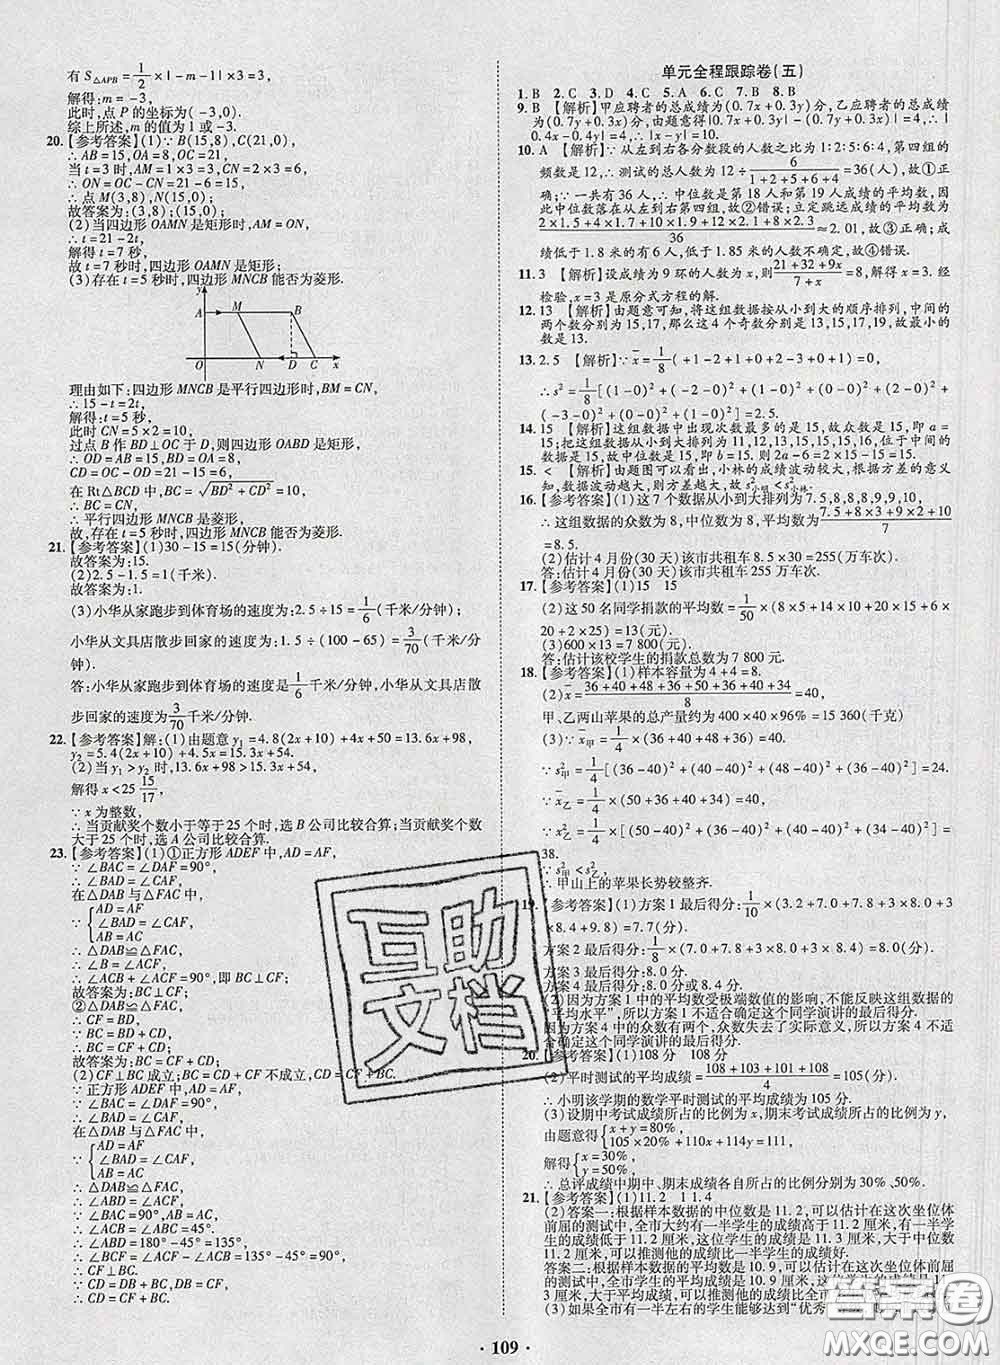 有 S△APB = 1/2 × | -m-1 | ×3=3,
解得:m=-3,
此时,点 P 的坐标为(-3,0).
综上所述,m 的值为 1 或 -3.
20.【参考答案】(1)∵B(15,8),C(21,0),
∴AB=15,OA=8,OC=21,
当 t=3 时,AM=1×3=3,
∴ON=OC-CN=21-6=15,
∴点 M(3,8),N(15,0);
故答案为:(3,8);(15,0);
(2)当四边形 OAMN 是矩形时,AM=ON,
∴t=21-2t,
解得 t=7 秒,
故 t=7 秒时,四边形 OAMN 是矩形;
(3)存在 t=5 秒时,四边形 MNCB 能否为菱形.
y
A M B
O N D C x
理由如下:四边形 MNCB 是平行四边形时,BM=CN,
∴15-t=2t,
解得:t=5 秒,
此时 CN=5×2=10,
过点 B 作 BD⊥OC 于 D,则四边形 OABD 是矩形,
∴OD=AB=15,BD=OA=8,
CD=OC-OD=21-15=6,
在 Rt△BCD 中,BC=√(BD²+CD²)=10,
∴BC=CN,
∴平行四边形 MNCB 是菱形,
故,存在 t=5 秒时,四边形 MNCB 能否为菱形.
21.【参考答案】(1)30-15=15(分钟).
故答案为:15.
(2)2.5-1.5=1(千米).
故答案为:1.
(3)小华从家跑步到体育场的速度为:2.5÷15=1/6(千米/分钟),
小华从文具店散步回家的速度为:1.5÷(100-65)=3/70(千米/分钟).
答:小华从家跑步到体育场的速度为1/6千米/分钟,小华从文具店散
步回家的速度为3/70千米/分钟.
22.【参考答案】解:(1)由题意 y₁=4.8(2x+10)+4x+50=13.6x+98,
y₂=5.4(2x+10)+4x=14.8x+54.
(2)当 y₁>y₂ 时,13.6x+98>14.8x+54,
解得 x<25 15/17,
∵x 为整数,
∴当贡献奖个数小于等于 25 个时,选 B 公司比较合算;当贡献奖个数
大于 25 个时,选 A 公司比较合算.
23.【参考答案】(1)①正方形 ADEF 中,AD=AF,
∵∠BAC=∠DAF=90°,
∴∠BAD=∠CAF,
在△DAB 与△FAC 中,
∵{AD=AF ∠BAD=∠CAF, AB=AC
∴△DAB≌△FAC,
∴∠B=∠ACF,
∴∠ACB+∠ACF=90°,即 BC⊥CF;
故答案为:BC⊥CF;
②△DAB≌△FAC,
∴CF=BD,
∵BC=BD+CD,
∴BC=CF+CD;
故答案为:BC=CF+CD;
(2)CF⊥BC 成立;BC=CD+CF 不成立,CD=CF+BC.
∵正方形 ADEF 中,AD=AF,
∵∠BAC=∠DAF=90°,
∴∠BAD=∠CAF,
在△DAB 与△FAC 中,
∵{AD=AF ∠BAD=∠CAF, AB=AC
∴△DAB≌△FAC,
∴∠ABD=∠ACF,
∵∠BAC=90°,AB=AC,
∴∠ACB=∠ABC=45°.
∴∠ABD=180°-45°=135°,
∴∠BCF=∠ACF-∠ACB=135°-45°=90°,
∴CF⊥BC.
∵CD=DB+BC,DB=CF,
∴CD=CF+BC.
单元全程跟踪卷(五)
1.B 2.C 3.D 4.C 5.A 6.C 7.B 8.B
9.B 【解析】甲应聘者的总成绩为(0.7x+0.3y)分,乙应聘者的总成绩
为(0.7y+0.3x)分,由题意得|(0.7x+0.3y)-(0.7y+0.3x)|=|
0.4x-0.4y|=0.4|x-y|,所以|x-y|=10.
10.A 【解析】∵从左到右各分数段的人数之比为 1:2:5:6:4,第四组的
频数是 12,∴测试的总人数为 12÷6/(1+2+5+6+4)=36(人),故①正
确;∵一共有 36 人,∴中位数是第 18 人和第 19 人成绩的平均数,∴
中位数落在从左到右第四组,故②错误;立定跳远成绩的平均数为
(2×1.5+4×1.7+10×1.9+12×2.1+8×2.3)/36≈2.01,故③正确;
成绩低于 1.8 米的有 6 人,低于 1.85 米的人数不确定,故④错误.
11.3 【解析】设成绩为 9 环的人数为 x,则(21+32+9x)/(7+x)=8,解得:x=3.经
检验,x=3 是原分式方程的解.
12.13 【解析】由题意可知,将数据按从小到大的顺序排列,中间的
两个数分别为 15,17,那么这 4 个奇数分别是 13,15,17,19,故最小的
数是 13.
13.2.5 【解析】∵x̄=1/8(+1-2+1+0+2-3+0+1)=0,
∴s²=1/8[(1-0)²+(-2-0)²+(1-0)²+(0-0)²+(2-0)²+
(-3-0)²+(0-0)²+(1-0)²]=2.5.
14.15 【解析】这组数据中出现次数最多的是 15,故众数是 15,即 a=
15;把这组数据从小到大排列为 11,12,13,15,15,15,16,位于最中间
的数据是 15,故中位数是 15,即 b=15.则 2a-b=2×15-15=15.
15.< 【解析】由题图可以看出,小林的成绩波动较大,根据方差的意义
知,数据波动越大,则方差越大,故 s²小明<s²小林.
16.【参考答案】(1)这 7 个数据从小到大排列为 7.5,8,8,8,9,9,10,
∴这组数据的众数为 8,中位数为 8,平均数为(7.5+8×3+9×2+10)/7
=8.5.
(2)估计 4 月份(30 天)该市共租车 8.5×30=255(万车次).
答:估计 4 月份(30 天)该市共租车 255 万车次.
17.【参考答案】(1)15 15
(2)这 50 名同学捐款的平均数=1/50×(8×5+14×10+20×15+6×
20+2×25)=13(元).
(3)600×13=7 800(元).
答:估计该校学生的捐款总数为 7 800 元.
18.【参考答案】(1)样本容量为 4+4=8.
(2)x̄=(36+40+48+36+50+36+40+34)/8=40,
甲、乙两山苹果的总产量约为 400×40×96%=15 360(千克)
(3)∵x̄甲=1/4×(36+40+48+36)=40,
∵s²甲=1/4×[(36-40)²+(40-40)²+(48-40)²+(36-40)²]=24.
∵x̄乙=1/4×(50+36+40+34)=40,
∵s²乙=1/4×[(50-40)²+(36-40)²+(40-40)²+(34-40)²]=
38.
∴s²甲<s²乙.
∴甲山上的苹果长势较整齐.
19.【参考答案】(1)方案 1 最后得分:1/10×(3.2+7.0+7.8+3×8+
3×8.4+9.8)=7.7(分).
方案 2 最后得分:1/8×(7.0+7.8+3×8.0+3×8.4)=8.0(分).
方案 3 最后得分:8.0 分.
方案 4 最后得分:8.0 分.
(2)因为方案 1 中的平均数受极端数值的影响,不能反映这组数据的
“平均水平”,所以方案 1 不适合确定这个同学演讲的最后得分.
因为方案 4 中的众数有两个,众数失去了实际意义,所以方案 4 不
20.【参考答案】(1)108 分 108 分
(2)平时测试的平均成绩=(108+103+101+108)/4=105(分).
∴小明该学期的数学平时测试的平均成绩为 105 分.
(3)设期中考试成绩所占的比例为 x,期末考试成绩所占的比例为 y,
由题意得{x+y=80% 105×20%+108x+114y=111,
解得{x=30% y=50%
∴总评成绩中期中、期末成绩各自所占的比例分别为 30%、50%.
21.【参考答案】(1)11.2 11.4
(2)答案一:根据样本数据的中位数是 11.2,可以估计在这次坐位体
前屈的测试中,全市大约有一半学生的成绩高于 11.2 厘米,有一半学
生的成绩低于 11.2 厘米,这位学生的成绩是 11.3 厘米,大于中位数
11.2 厘米,可以推测他的成绩比一半学生的成绩好.
答案二:根据样本数据的平均成绩是 10.9,可以估计在这次坐位体前屈
的测试中,全市学生的平均成绩是 10.9 厘米,这位学生的成绩是
3 厘米,大于平均成绩 10.9 厘米,可以推测他的成绩比
(3)如果全市有一半左右的学生能够达到“优秀
互助
文档
答案圈
MXQE.COM
· 109 ·